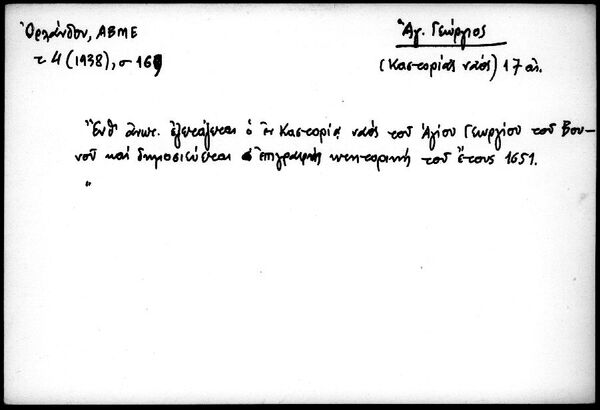 Ὀρλάνδου, ΑΒΜΕ
τ 4 (1938), σ 169
Ἅγ. Γεώργιος
(Καστοριᾶς ναός) 17 αἰ.
Ἔνθ' ἀνωτ. ἐξετάζεται ὁ ἐν Καστορίᾳ ναός τοῦ Ἁγίου Γεωργίου τοῦ Βου-
νοῦ καί δημοσιεύεται ἐπιγραφή κτητορική τοῦ ἔτους 1651.
"